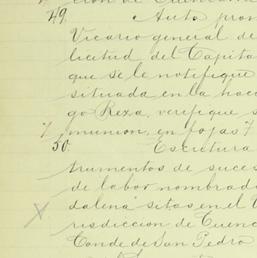 cion de Cuencamé
49. Auto pron
Vicario general de
licitud del Capita
que se le notifique
situada en la hacie
go Reza, verifique s
7 munion, en fojas 7
50. Escritura
trumentos de suces
de labor nombrada
dalena" sitas en el V
X risdiccion de Cuenc
Conde de San Pedro